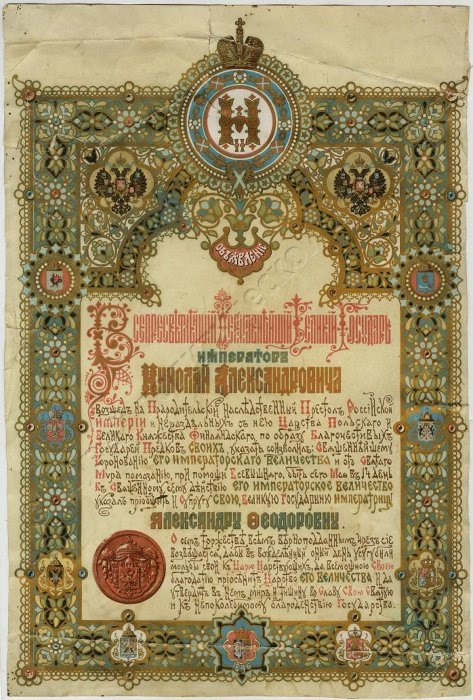 Н
II
ОБЪЯВЛЕНІЕ
Всепресвѣтлѣйшій Державнѣйшій Великій Государь
Императоръ
Николай Александровичъ
возшедъ на Прародительскій Наслѣдственный Престолъ Россійской
Имперіи и нераздѣльныхъ съ нею Царства Польскаго и
Великаго Княжества Финляндскаго, по образу Благочестивыхъ
Государей Предковъ СВОИХЪ, указать соизволилъ: Священнѣйшему
Коронованію ЕГО ИМПЕРАТОРСКАГО ВЕЛИЧЕСТВА и отъ Святаго
Мѵра помазанію, при помощи Всевышняго, быть сего Мая въ 14 день
къ Священному сему дѣйствію ЕГО ИМПЕРАТОРСКОЕ ВЕЛИЧЕСТВО
указалъ пріобщить и Супругу СВОЮ, ВЕЛИКУЮ ГОСУДАРЫНЮ ИМПЕРАТРИЦУ
Александру Ѳеодоровну.
О семъ Торжествѣ всѣмъ вѣрноподданнымъ чрезъ сіе
возвѣщается, дабы въ вожделѣнный оный день усугубили
мольбы свои къ Царю Царствующихъ, да всемощною СВОЕЮ
благодатію пріосѣнитъ Царство ЕГО ВЕЛИЧЕСТВА и да
утвердитъ въ немъ миръ и тишину, во славу СВОЮ Святую
и къ непоколебимому благоденствію Государства.